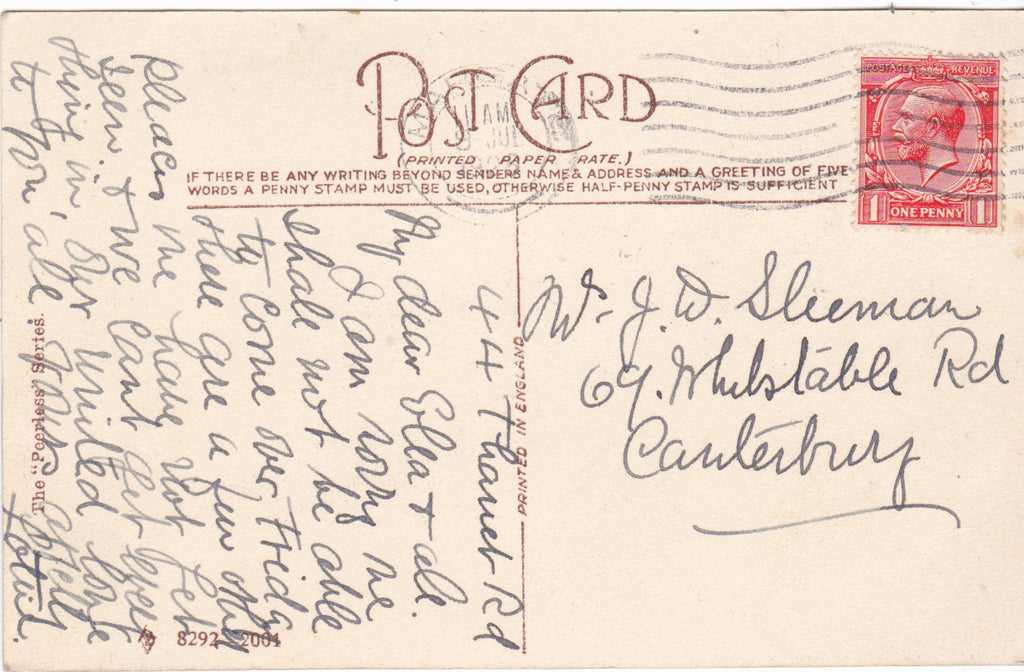 POST CARD
(PRINTED PAPER RATE.)
IF THERE BE ANY WRITING BEYOND SENDERS NAME & ADDRESS AND A GREETING OF FIVE
WORDS A PENNY STAMP MUST BE USED, OTHERWISE HALF-PENNY STAMP IS SUFFICIENT
POSTAGE REVENUE
1 ONE PENNY 1
AM
JUL
44 Thanet Rd
My dear Ella & all.
I am sorry we
shall not be able
to come over Friday
there are a few other
places we have not yet
seen & we cant get every
thing in, our united love
to you all
The "Peerless" Series.
PRINTED IN ENGLAND
8292 2001
Mr J. W. Sleeman
69. Whitstable Rd
Canterbury